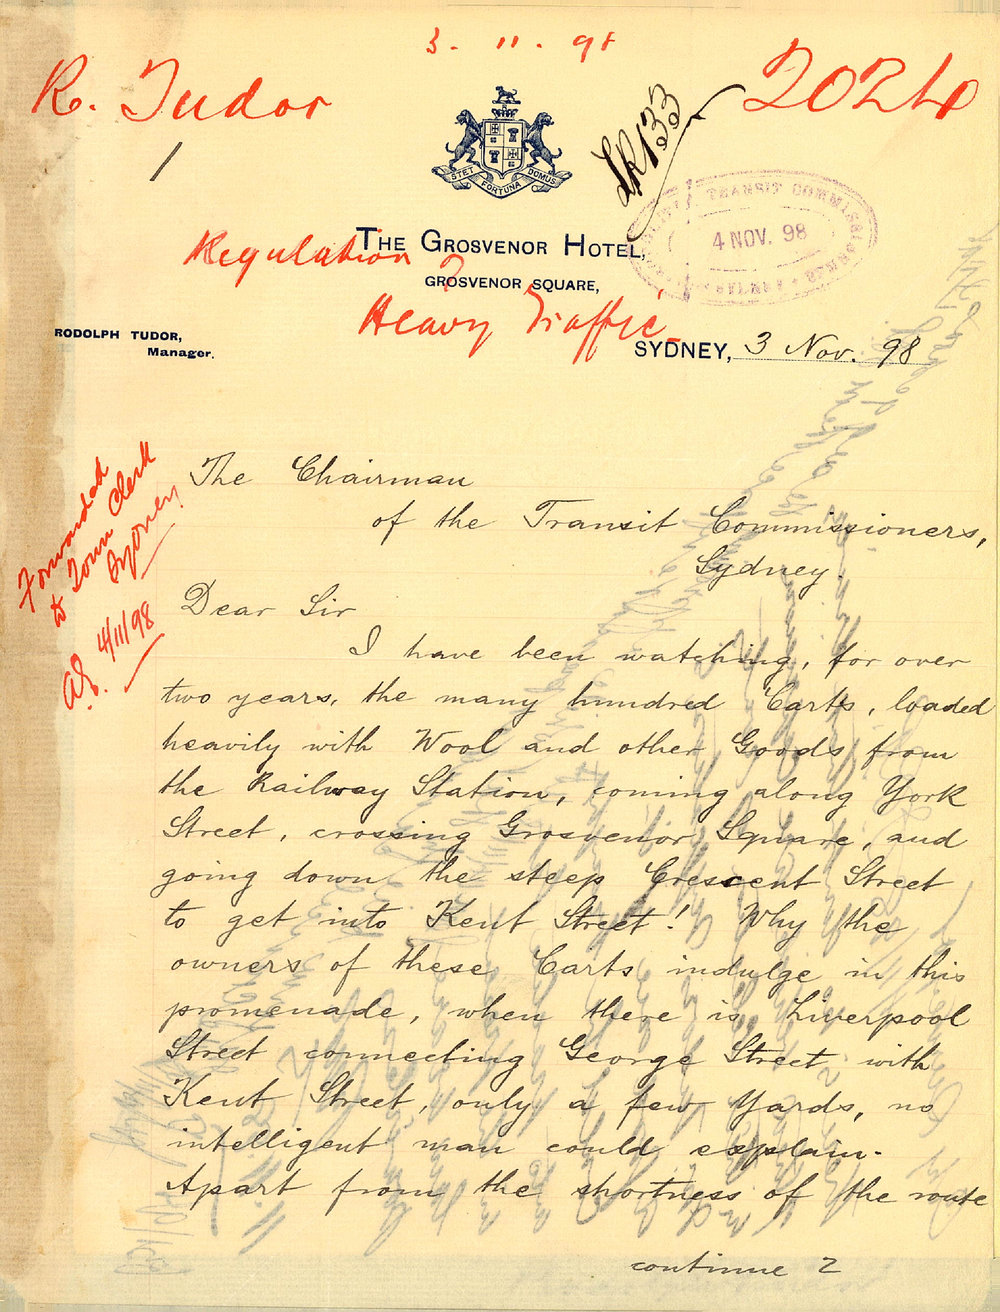 3. 11. 98
R. Tudor
2024
LR133
1
STET FORTUNA DOMUS
TRANSIT COMMISSIONER
4 NOV. 98
SYDNEY
THE GROSVENOR HOTEL,
GROSVENOR SQUARE,
Regulation
Heavy Traffic
RODOLPH TUDOR,
Manager.
SYDNEY, 3 Nov. 98
Forwarded
to Town Clerk
Sydney
4/11/98
The Chairman
of the Transit Commissioners,
Sydney.
Dear Sir
I have been watching, for over
two years, the many hundred Carts, loaded
heavily with Wool and other Goods from
the Railway Station, coming along York
Street, crossing Grosvenor Square, and
going down the steep Crescent Street
to get into Kent Street! Why the
owners of these Carts indulge in this
promenade, when there is Liverpool
Street connecting George Street with
Kent Street, only a few Yards, no
intelligent man could explain.
Apart from the shortness of the route
continue 2